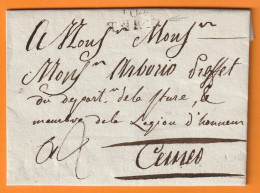 A Mons.r Mons.r
Mons.r Arborio Préfet
du départ. de la Sture, &
membre de la Légion d'honneur
à